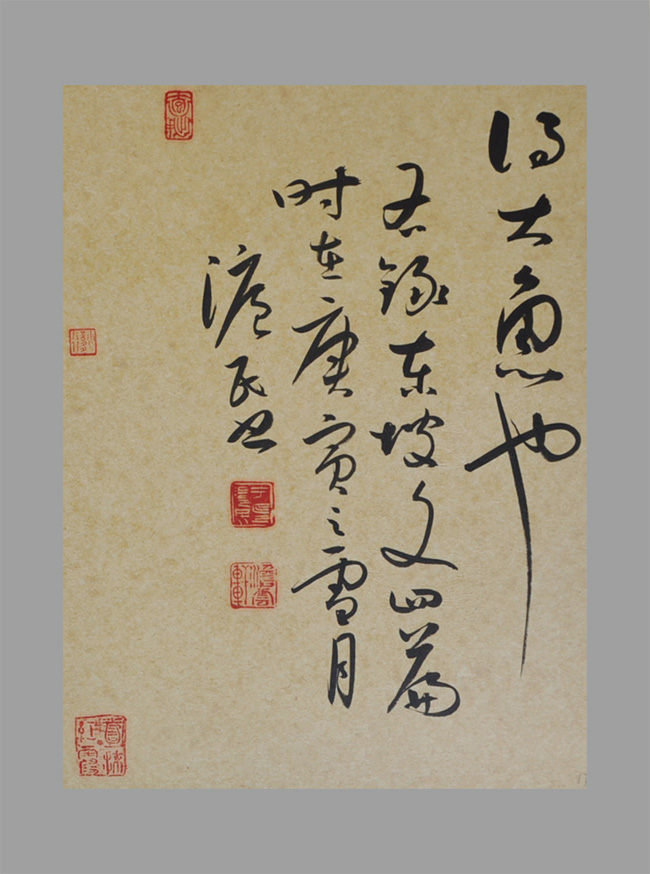 得大魚也
右錄东坡文四篇
时在庚寅之雪月
滬民书